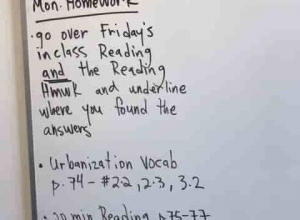 Mon. Homework
• go over Friday's
in class Reading
and the Reading
Hmwk and underline
where you found the
answers
• Urbanization Vocab
p. 74 - #2.2, 2.3, 3.2
• 20 min Reading p. 75-77